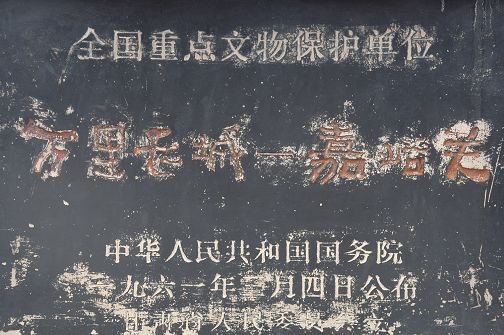 全国重点文物保护单位
万里长城一嘉峪关
中华人民共和国国务院
一九六一年三月四日公布
甘肃省人民委员会立